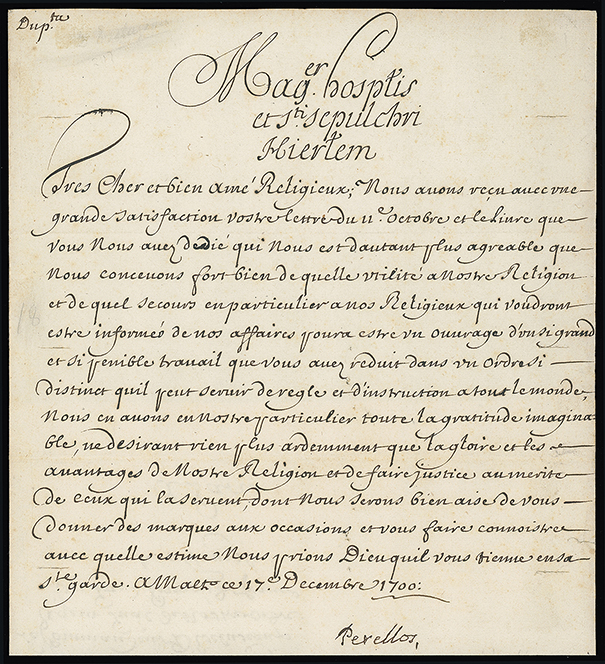 Dup.ta
Mag.er hosptis
et S.ti sepulchri
Hierlem
Tres Cher et bien amé Religieux; Nous avons reçeu avec vne
grande satisfaction vostre lettre du 11.e Octobre et le Liure que
vous Nous auez dedié qui Nous est dautant plus agreable que
Nous conceuons fort bien de quelle vtilité a Nostre Religion
et de quel secours en particulier a nos Religieux qui voudront
estre informés de nos affaires poura estre vn ouvrage d'vn si grand
et si penible trauail que vous auez reduit dans vn Ordre si
distinct quil peut seruir de regle et d'instruction a tout le monde,
Nous en auons en Nostre particulier toute la gratitude imagina=
ble, ne desirant rien plus ardemment que la gloire et les
auantages de Nostre Religion et de faire justice au merite
de ceux qui la seruent, dont Nous serons bien aise de vous
donner des marques aux occasions et vous faire connoistre
auec quelle estime Nous prions Dieu quil vous tienne en sa
S.te garde. A Malte ce 17.e Decembre 1700:
Perellos,